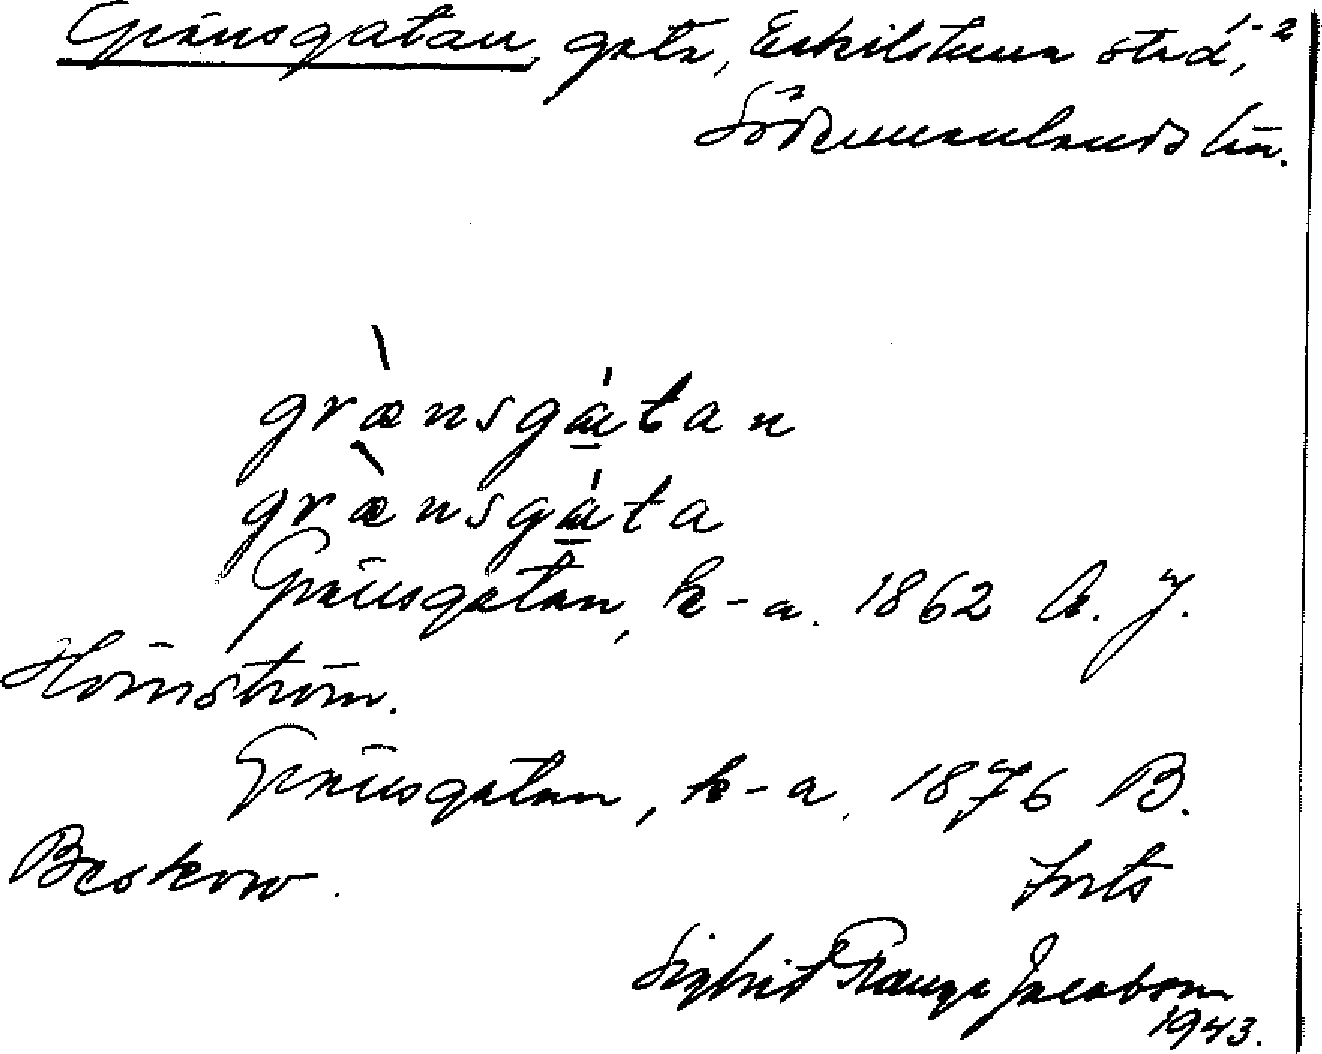 Gränsgatan, gata, Eskilstuna stad, 1-2
Södermanlands län.
græ̀nsgátan
græ̀nsgáta
Gränsgatan, k-a. 1862 A. J.
Hörnström.
Gränsgatan, k-a. 1876 B.
Beskow.
forts
Sigbrit Plænge Jacobson
1943.